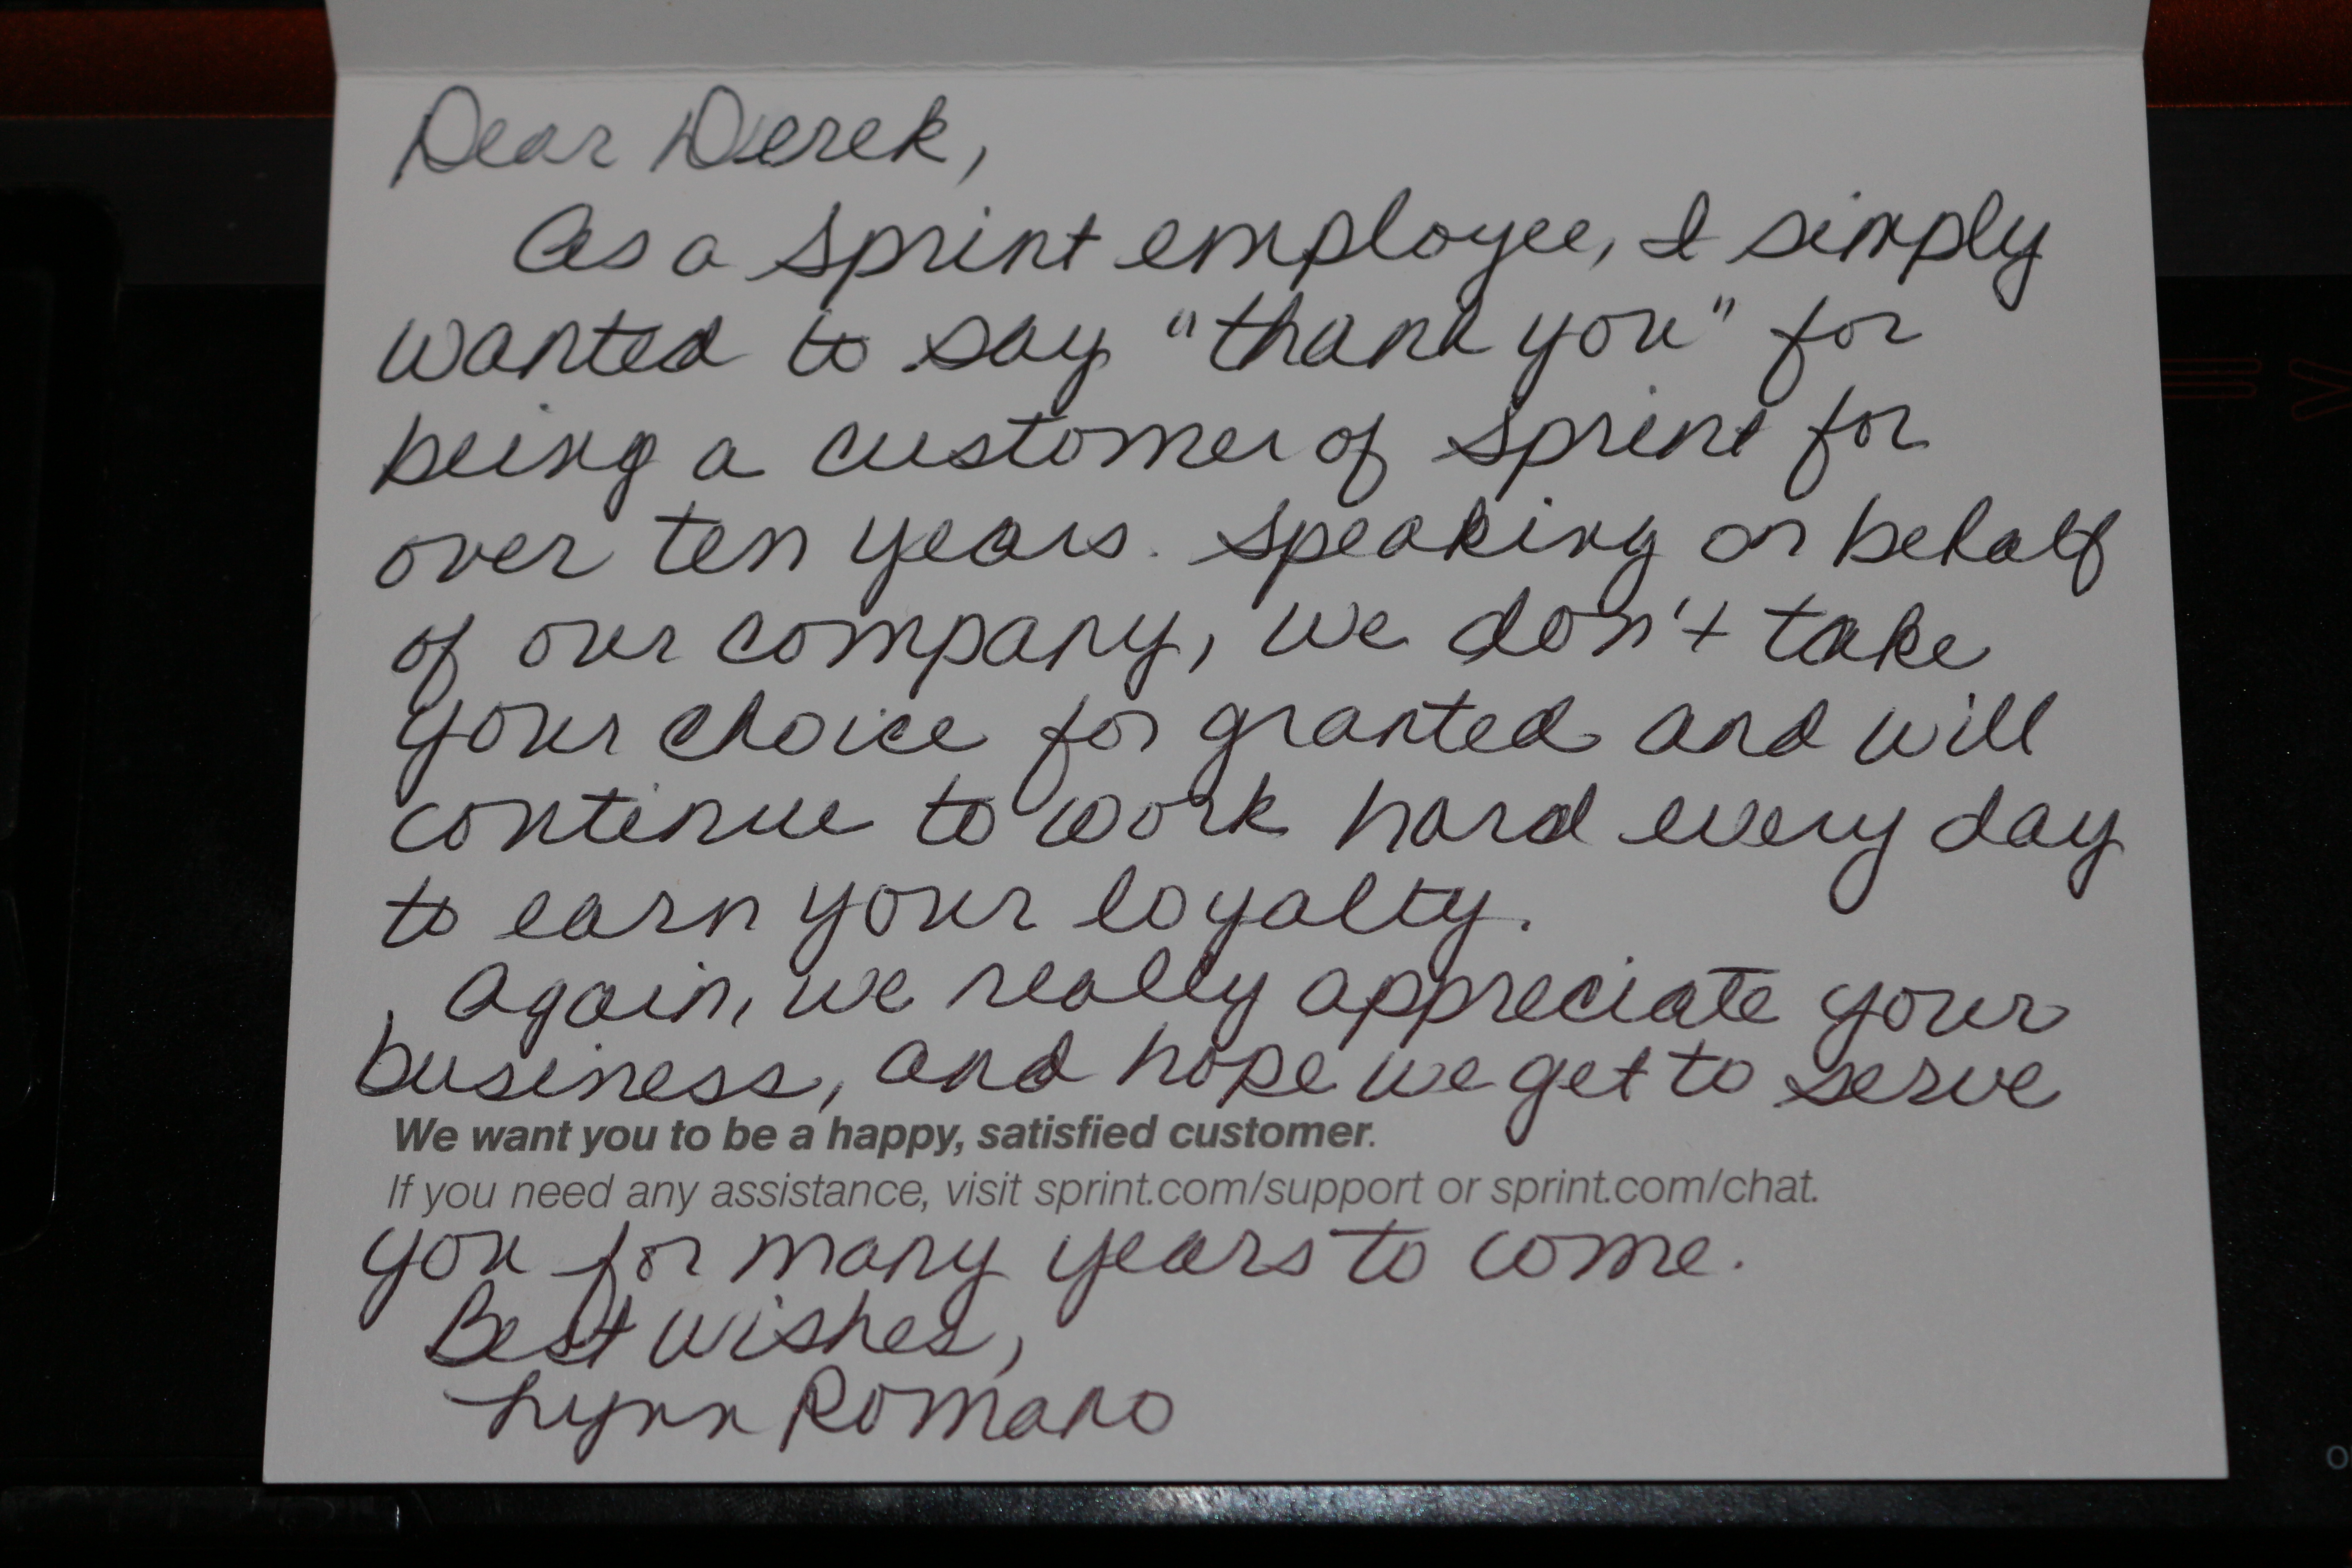 Dear Derek,
As a Sprint employee, I simply
wanted to say "thank you" for
being a customer of Sprint for
over ten years. Speaking on behalf
of our company, we don't take
your choice for granted and will
continue to work hard every day
to earn your loyalty.
Again, we really appreciate your
business, and hope we get to serve
We want you to be a happy, satisfied customer.
If you need any assistance, visit sprint.com/support or sprint.com/chat.
you for many years to come.
Best wishes,
Lynn Romano